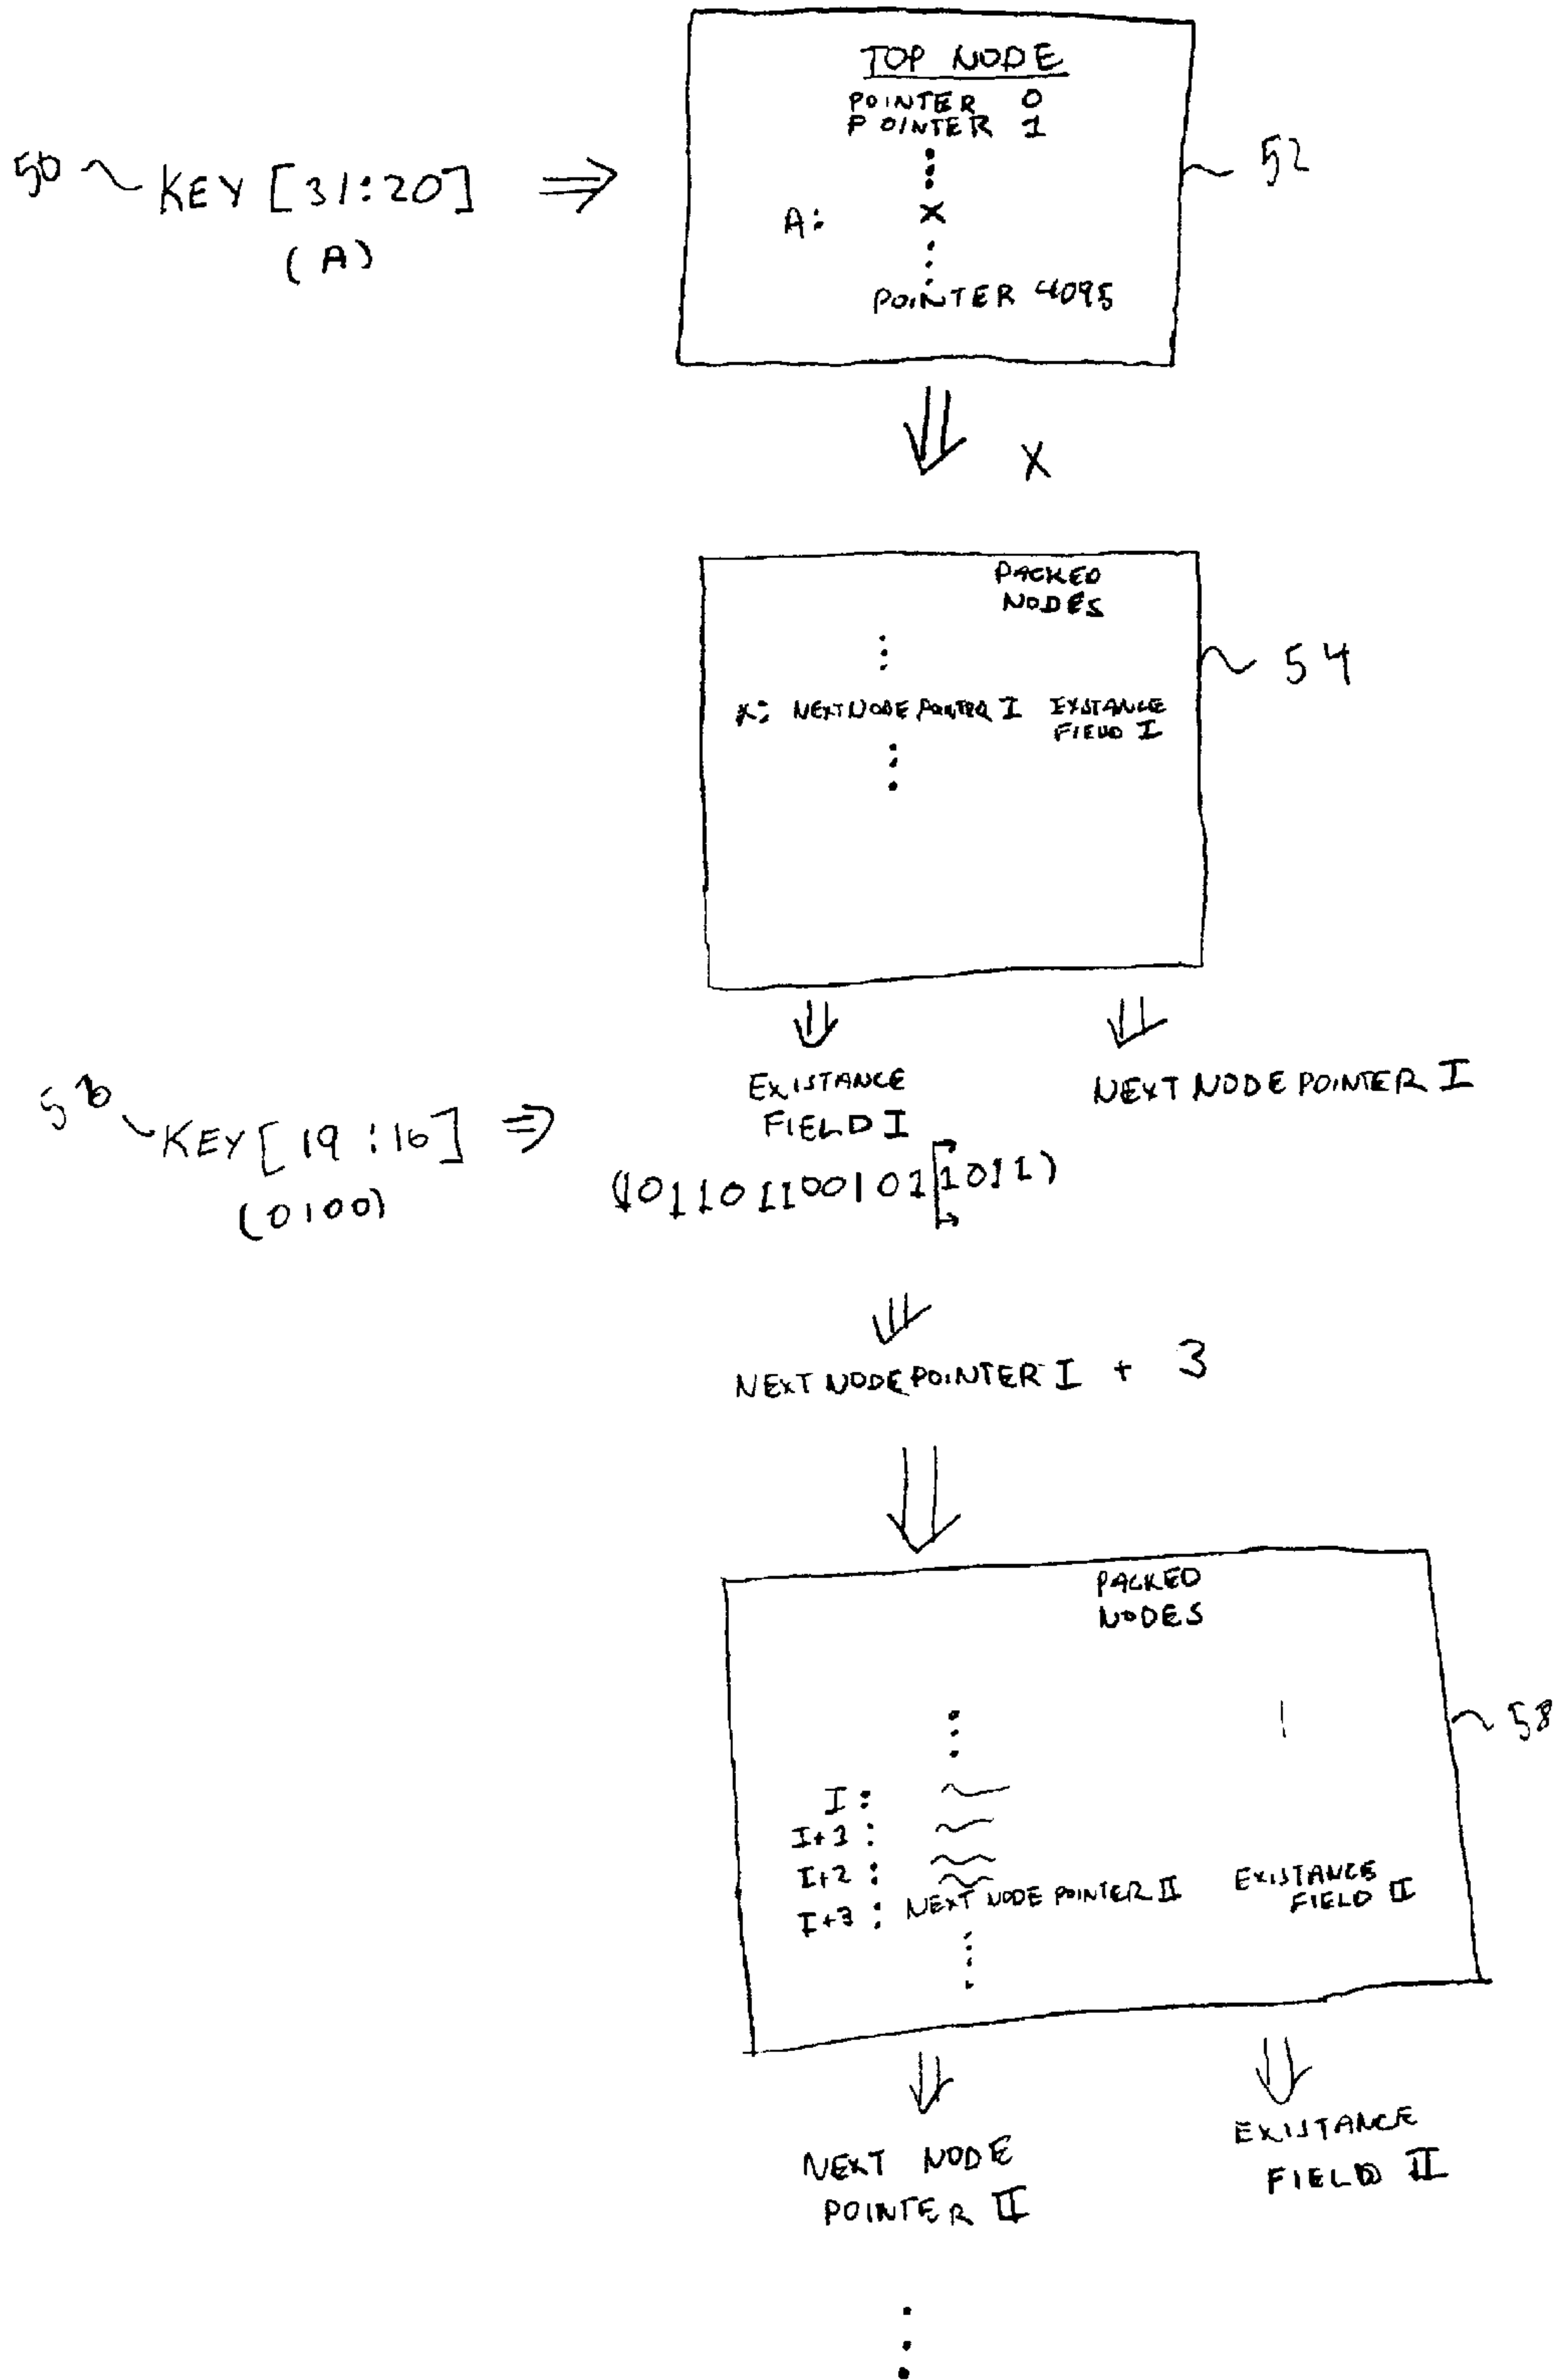 TOP NODE
POINTER 0
POINTER 1
50 KEY [31:20]
(A)
52
A: X
POINTER 4095
X
PACKED
NODES
54
X: NEXT NODE POINTER I EXISTANCE
FIELD I
EXISTANCE
FIELD I
NEXT NODE POINTER I
56 KEY [19:16]
(0100)
(1011011001011011)
NEXT NODE POINTER I + 3
PACKED
NODES
58
I:
I+1:
I+2:
I+3: NEXT NODE POINTER II EXISTANCE
FIELD II
NEXT NODE
POINTER II
EXISTANCE
FIELD II